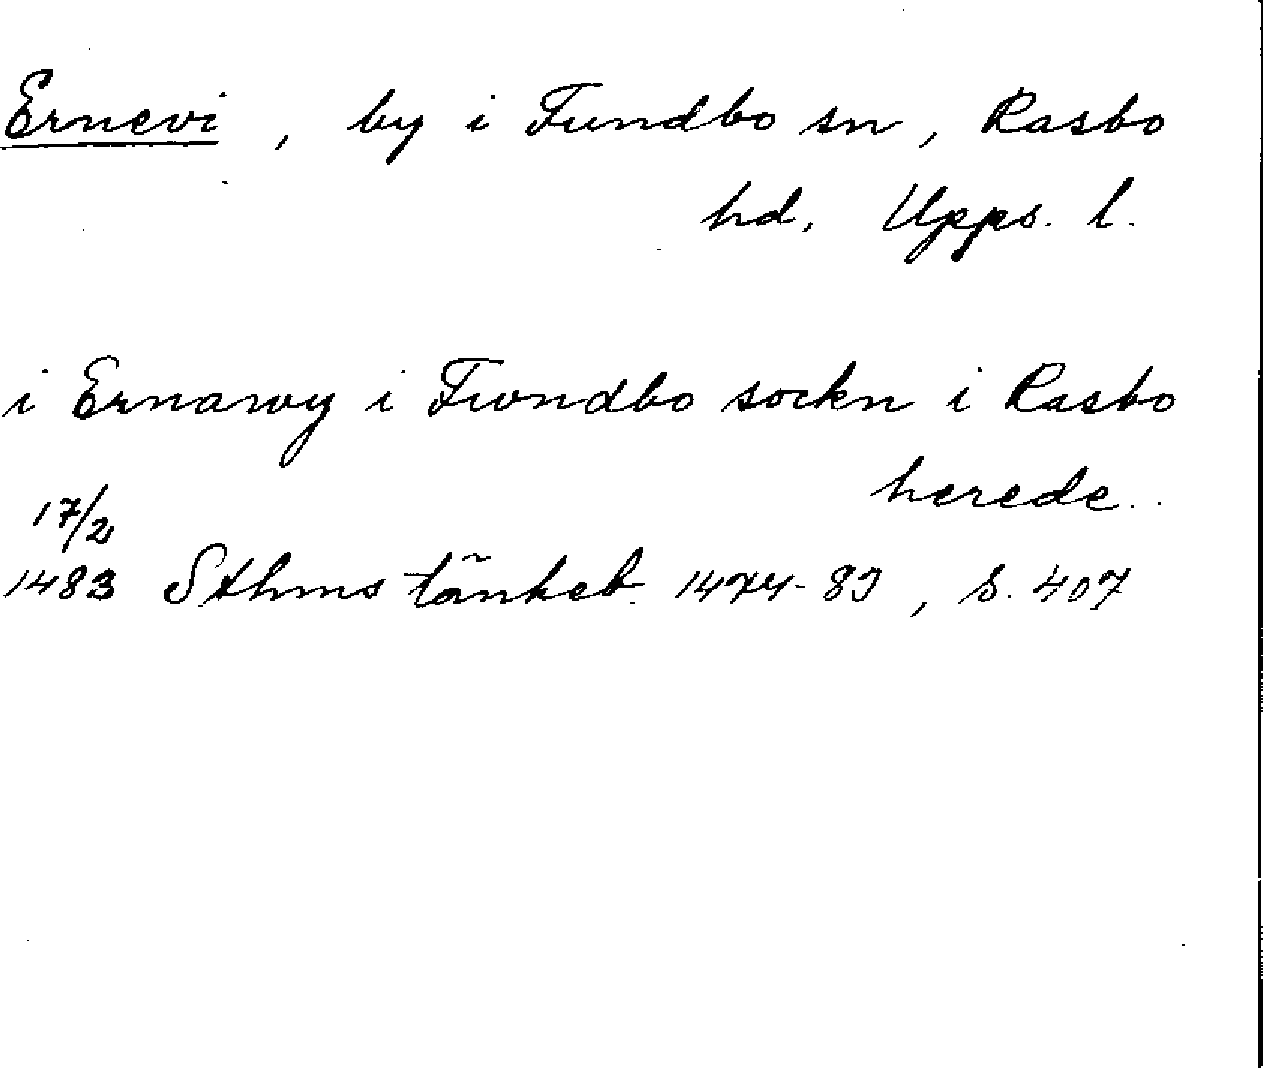 Ernevi, by i Funbo sn, Rasbo
hd, Upps. l.
i Ernawy i Fwndbo sockn i Rasbo
herede..
17/2
1483 Sthms tänkeb. 1474-83, s. 407